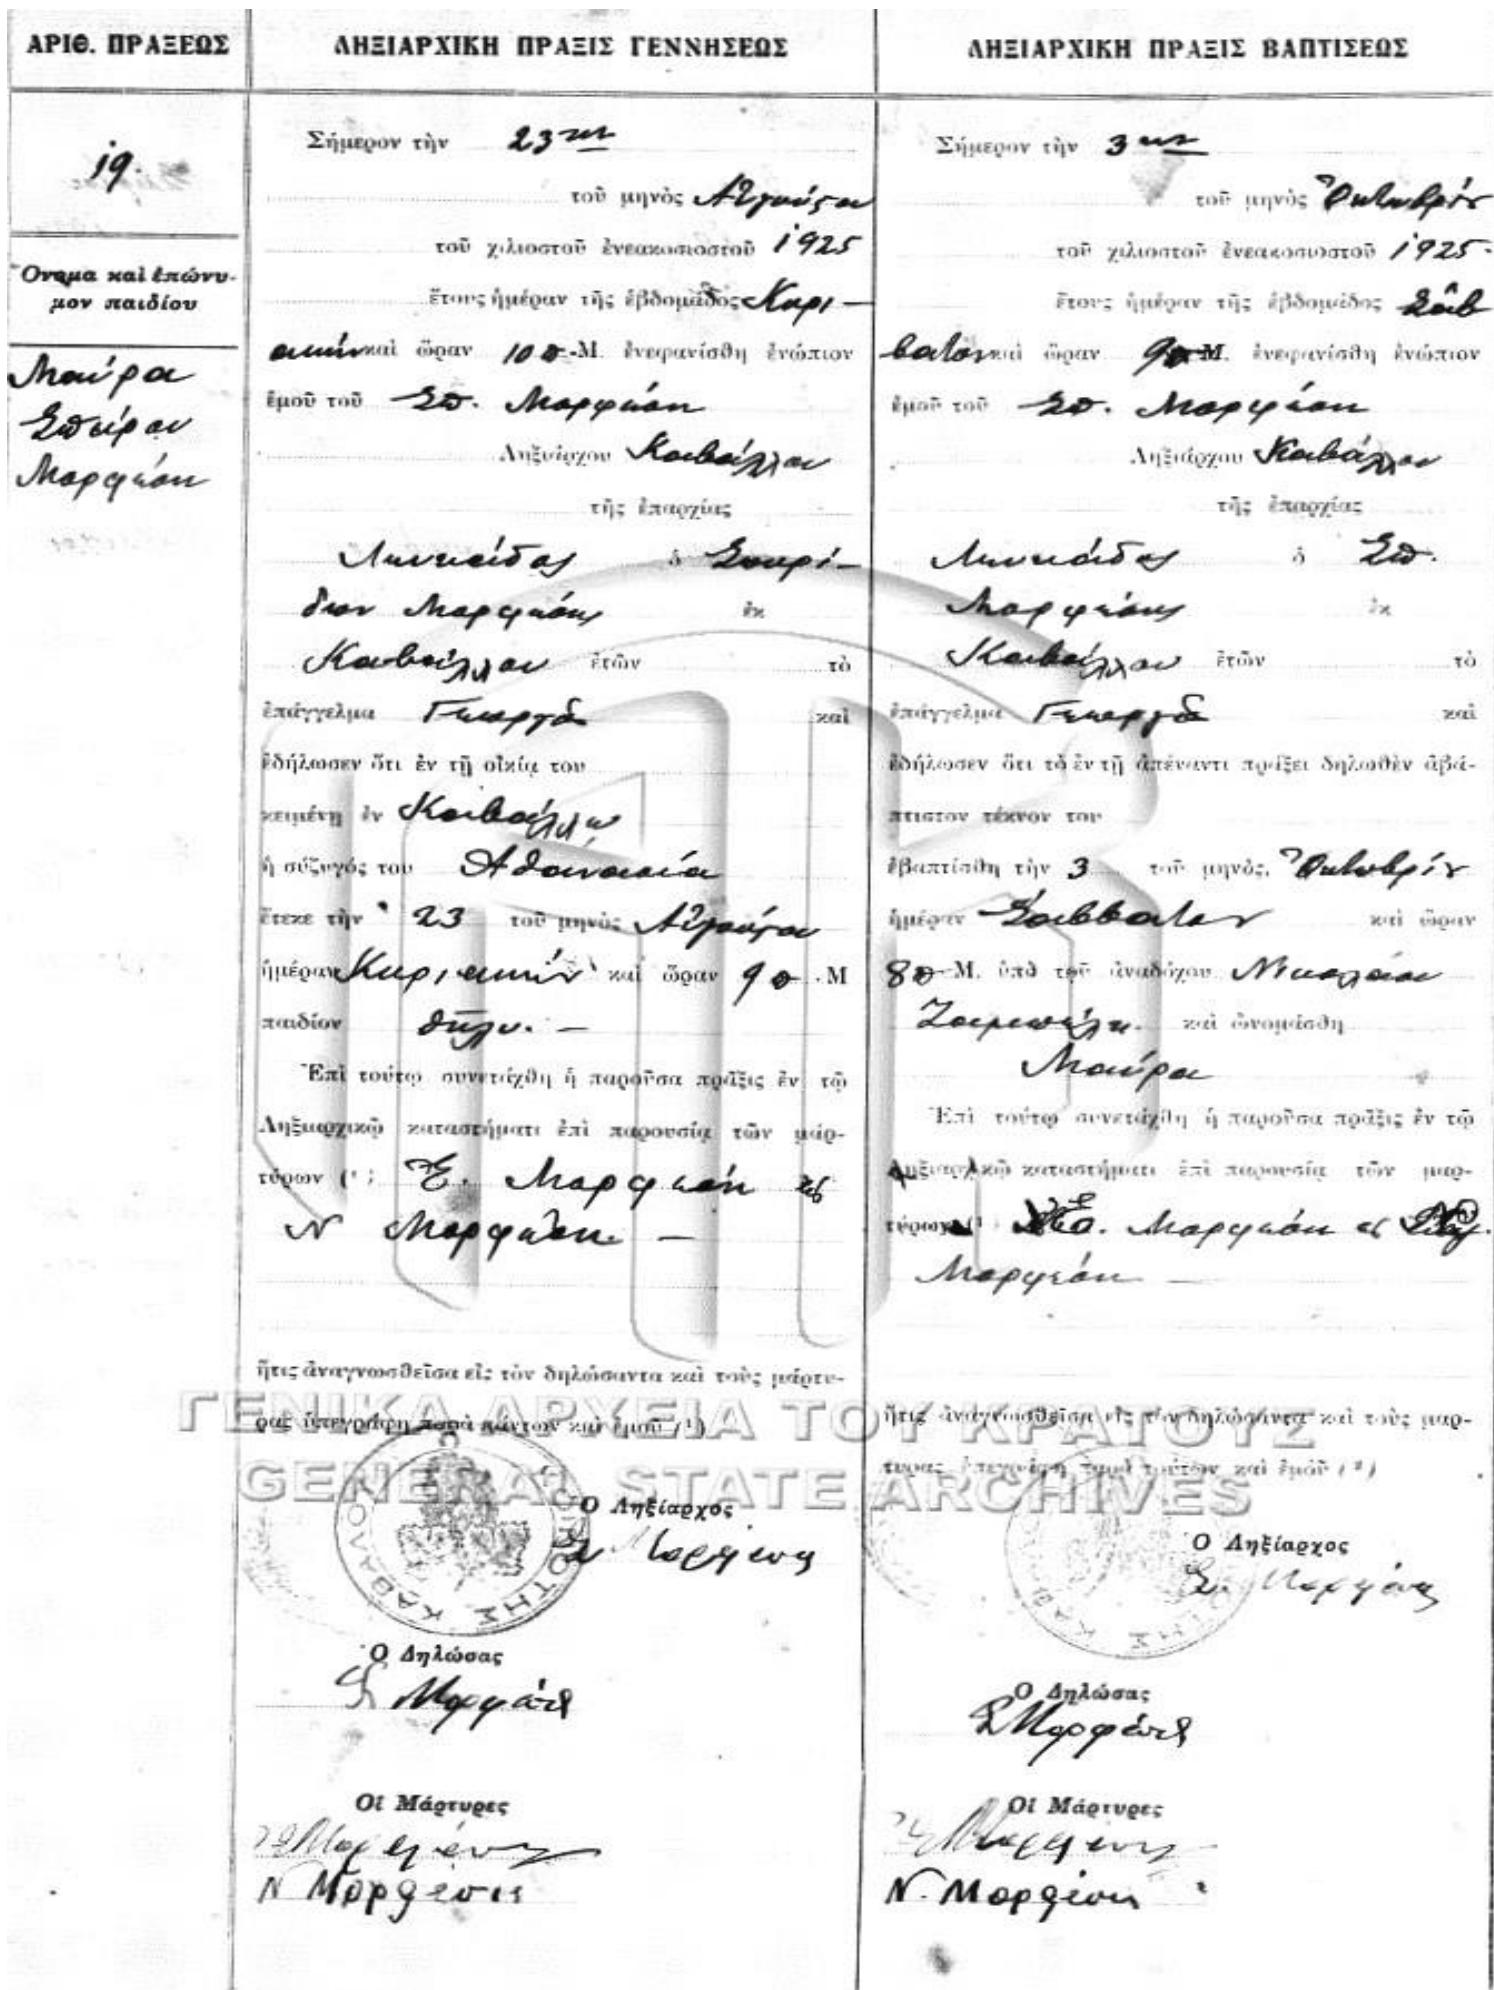 ΑΡΙΘ. ΠΡΑΞΕΩΣ
19.
Ὄνομα καὶ ἐπώνυ-
μον παιδίου
Μαύρα
Σπύρου
Μορφέση
ΛΗΞΙΑΡΧΙΚΗ ΠΡΑΞΙΣ ΓΕΝΝΗΣΕΩΣ
Σήμερον τὴν 23ην
τοῦ μηνὸς Αὐγούστου
τοῦ χιλιοστοῦ ἐνεακοσιοστοῦ 1925
ἔτους ἡμέραν τῆς ἑβδομάδος Κυρι-
ακήν καὶ ὥραν 10 π.Μ. ἐνεφανίσθη ἐνώπιον
ἐμοῦ τοῦ Σπ.
Ληξιάρχου Καβάλλου
τῆς ἐπαρχίας
Λευκάδος ὁ Σπυρί-
δων ἐκ
Καβάλλου ἐτῶν τὸ
ἐπάγγελμα Γεωργὸς καὶ
ἐδήλωσεν ὅτι ἐν τῇ οἰκίᾳ του
κειμένῃ ἐν Καβάλλῳ
ἡ σύζυγός του Ἀθανασία
ἔτεκε τὴν 23 τοῦ μηνὸς Αὐγούστου
ἡμέραν Κυριακήν καὶ ὥραν 9 π.Μ
παιδίον θῆλυ. -
Ἐπὶ τούτῳ συνετάχθη ἡ παροῦσα πρᾶξις ἐν τῷ
Ληξιαρχικῷ καταστήματι ἐπὶ παρουσίᾳ τῶν μαρ-
τύρων (¹)
Ν
ἥτις ἀναγνωσθεῖσα εἰς τὸν δηλώσαντα καὶ τοὺς μάρτυ-
ρας ὑπεγράφη παρὰ πάντων καὶ ἐμοῦ (¹)
Ὁ Ληξίαρχος
Ὁ Δηλώσας
Οἱ Μάρτυρες
ΛΗΞΙΑΡΧΙΚΗ ΠΡΑΞΙΣ ΒΑΠΤΙΣΕΩΣ
Σήμερον τὴν 3ην
τοῦ μηνὸς Ὀκτωβρίου
τοῦ χιλιοστοῦ ἐνεακοσιοστοῦ 1925.
ἔτους ἡμέραν τῆς ἑβδομάδος Σάβ
βατον καὶ ὥραν 9 π.Μ. ἐνεφανίσθη ἐνώπιον
ἐμοῦ τοῦ Σπ.
Ληξιάρχου Καβάλλου
τῆς ἐπαρχίας
Λευκάδος ὁ Σπ.
ἐκ
Καβάλλου ἐτῶν τὸ
ἐπάγγελμα Γεωργὸς καὶ
ἐδήλωσεν ὅτι τὸ ἐν τῇ ἀπέναντι πράξει δηλωθὲν ἀβά-
πτιστον τέκνον του
ἐβαπτίσθη τὴν 3 τοῦ μηνὸς Ὀκτωβρίου
ἡμέραν Σάββατον καὶ ὥραν
8 π.Μ. ὑπὸ τοῦ ἀναδόχου Νικολάου
Ζαμπέλη. καὶ ὠνομάσθη
Μαύρα
Ἐπὶ τούτῳ συνετάχθη ἡ παροῦσα πρᾶξις ἐν τῷ
Ληξιαρχικῷ καταστήματι ἐπὶ παρουσίᾳ τῶν μαρ-
τύρων (¹)
ἥτις ἀναγνωσθεῖσα εἰς τὸν δηλώσαντα καὶ τοὺς μαρ-
τυρας ὑπεγράφη παρὰ τούτων καὶ ἐμοῦ (²)
Ὁ Ληξίαρχος
Ὁ Δηλώσας
Οἱ Μάρτυρες
ΓΕΝΙΚΑ ΑΡΧΕΙΑ ΤΟΥ ΚΡΑΤΟΥΣ
GENERAL STATE ARCHIVES